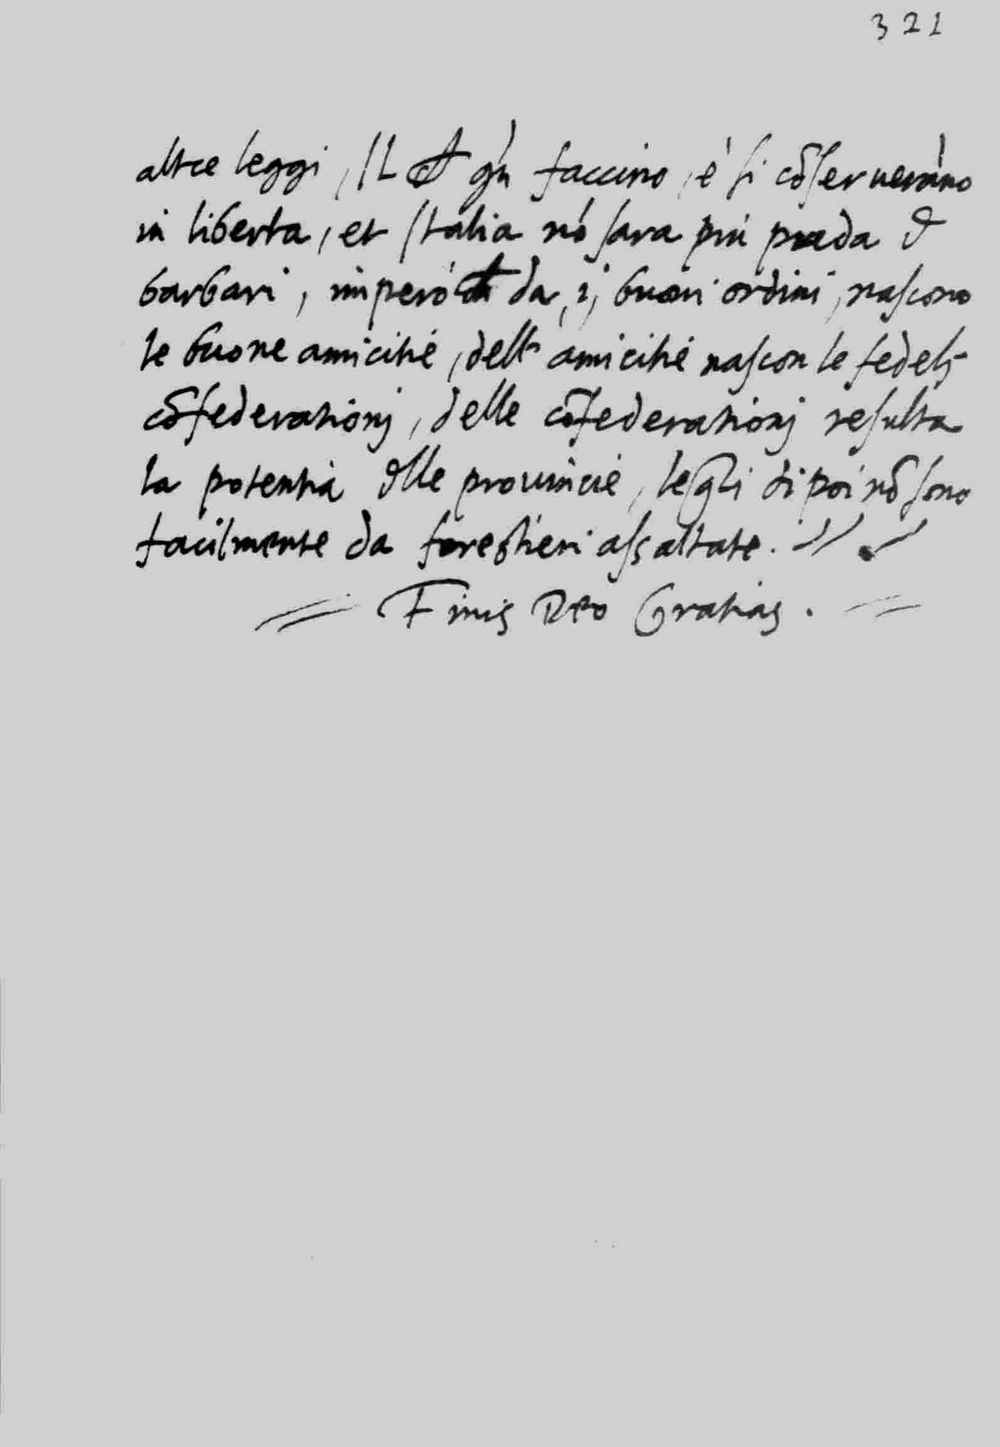 321
altre leggi, IL ch̄ qñ faccino, è si cōserueràno
in liberta, et Italia nō sara piu preda d
barbari, imperò ch̄ da, i, buoni ordini, nascono
le buone amicitie, dell amicitie nascon le fedeli
cōfederationj, delle cōfederationj resulta
la potentia dlle prouincie, leq̄li dipoi nō sono
facilmente da forestieri assaltate.
Finis Deo Gratias.